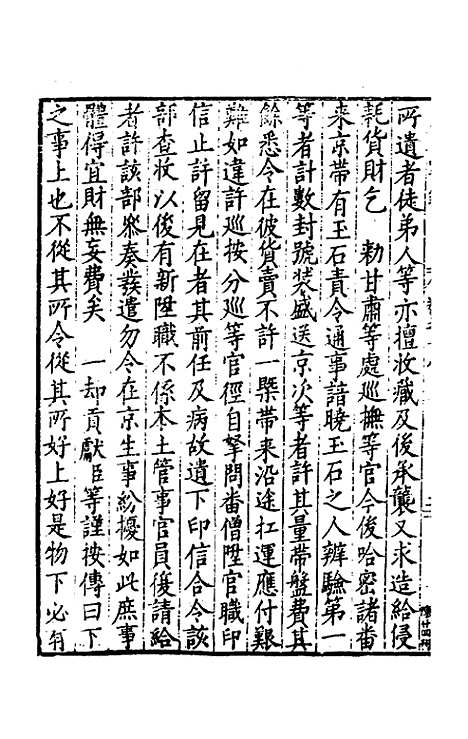 所遺者徒弟人等亦擅收藏及後承襲又求造給侵
耗貨財乞　勅甘肅等處巡撫等官今後哈密諸番
来京帶有玉石責令通事諳曉玉石之人辨驗第一
等者計數封號裝盛送京次等者許其量帶盤費其
餘悉令在彼貨賣不許一槩帶来沿途扛運應付艱
難如違許巡按分巡等官徑自拏問番僧陞官職印
信止許留見在者其前任及病故遺下印信合令該
部查收以後有新陞職不係本土管事官員復請給
者許該部叅奏發遣勿令在京生事紛擾如此庶事
體得宜財無妄費矣　一却貢獻臣等謹按傳曰下
之事上也不從其所令從其所好上好是物下必有